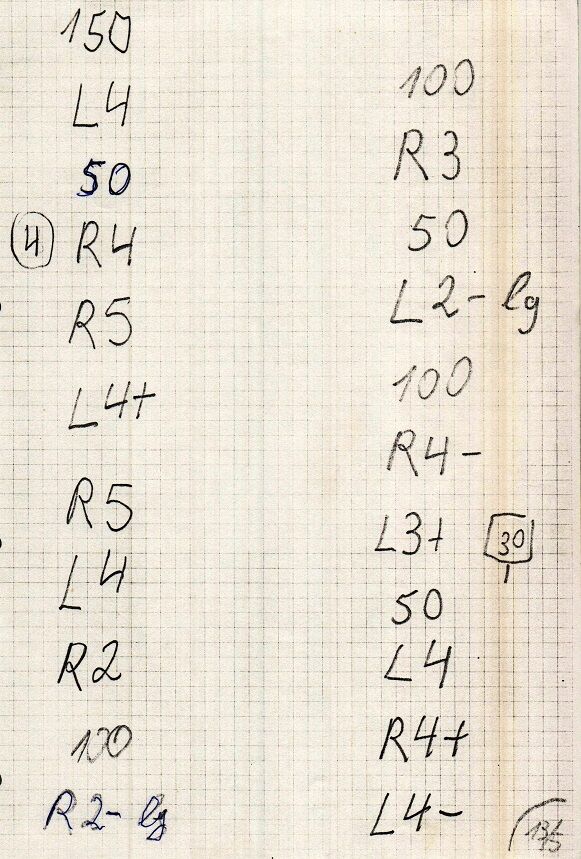 150
L4
50
4 R4
R5
L4+
R5
L4
R2
100
R2- lg
100
R3
50
L2- lg
100
R4-
L3+ 30
50
L4
R4+
L4-